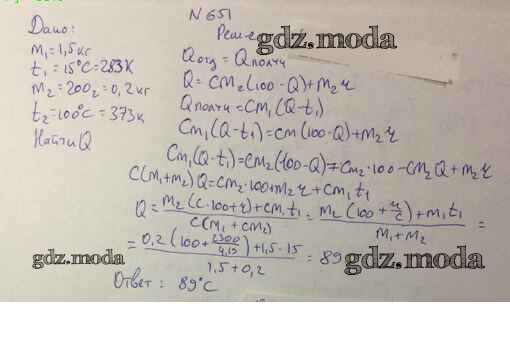 N 651
Дано:
Решение
gdz.moda
m₁=1,5кг
t₁=15°C=283К
m₂=200г=0,2кг
t₂=100°C=373к
Найти Q
Qотд = Qполуч
Q=Cm₂(100-Q)+m₂r
Qполуч=Cm₁(Q-t₁)
Cm₁(Q-t₁)=Cm(100-Q)+m₂r
Cm₁(Q-t₁)=Cm₂(100-Q)+Cm₂·100-Cm₂Q+m₂r
C(m₁+m₂)Q=Cm₂·100+m₂r+Cm₁t₁
Q = (m₂(C·100+r)+Cm₁t₁)/(C(m₁+Cm₂)) = (m₂(100+r/C)+m₁t₁)/(m₁+m₂) =
= (0,2(100+2300/4,19)+1,5·15)/(1,5+0,2) = 89
gdz.moda
gdz.moda
Ответ: 89°C